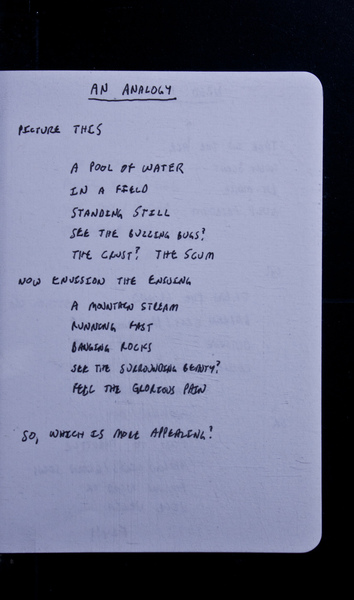 AN ANALOGY
PICTURE THIS
A POOL OF WATER
IN A FIELD
STANDING STILL
SEE THE BUZZING BUGS?
THE CRUST? THE SCUM
NOW ENVISION THE ENSUING
A MOUNTAIN STREAM
RUNNING FAST
BANGING ROCKS
SEE THE SURROUNDING BEAUTY?
FEEL THE GLORIOUS PAIN
SO, WHICH IS MORE APPEALING?